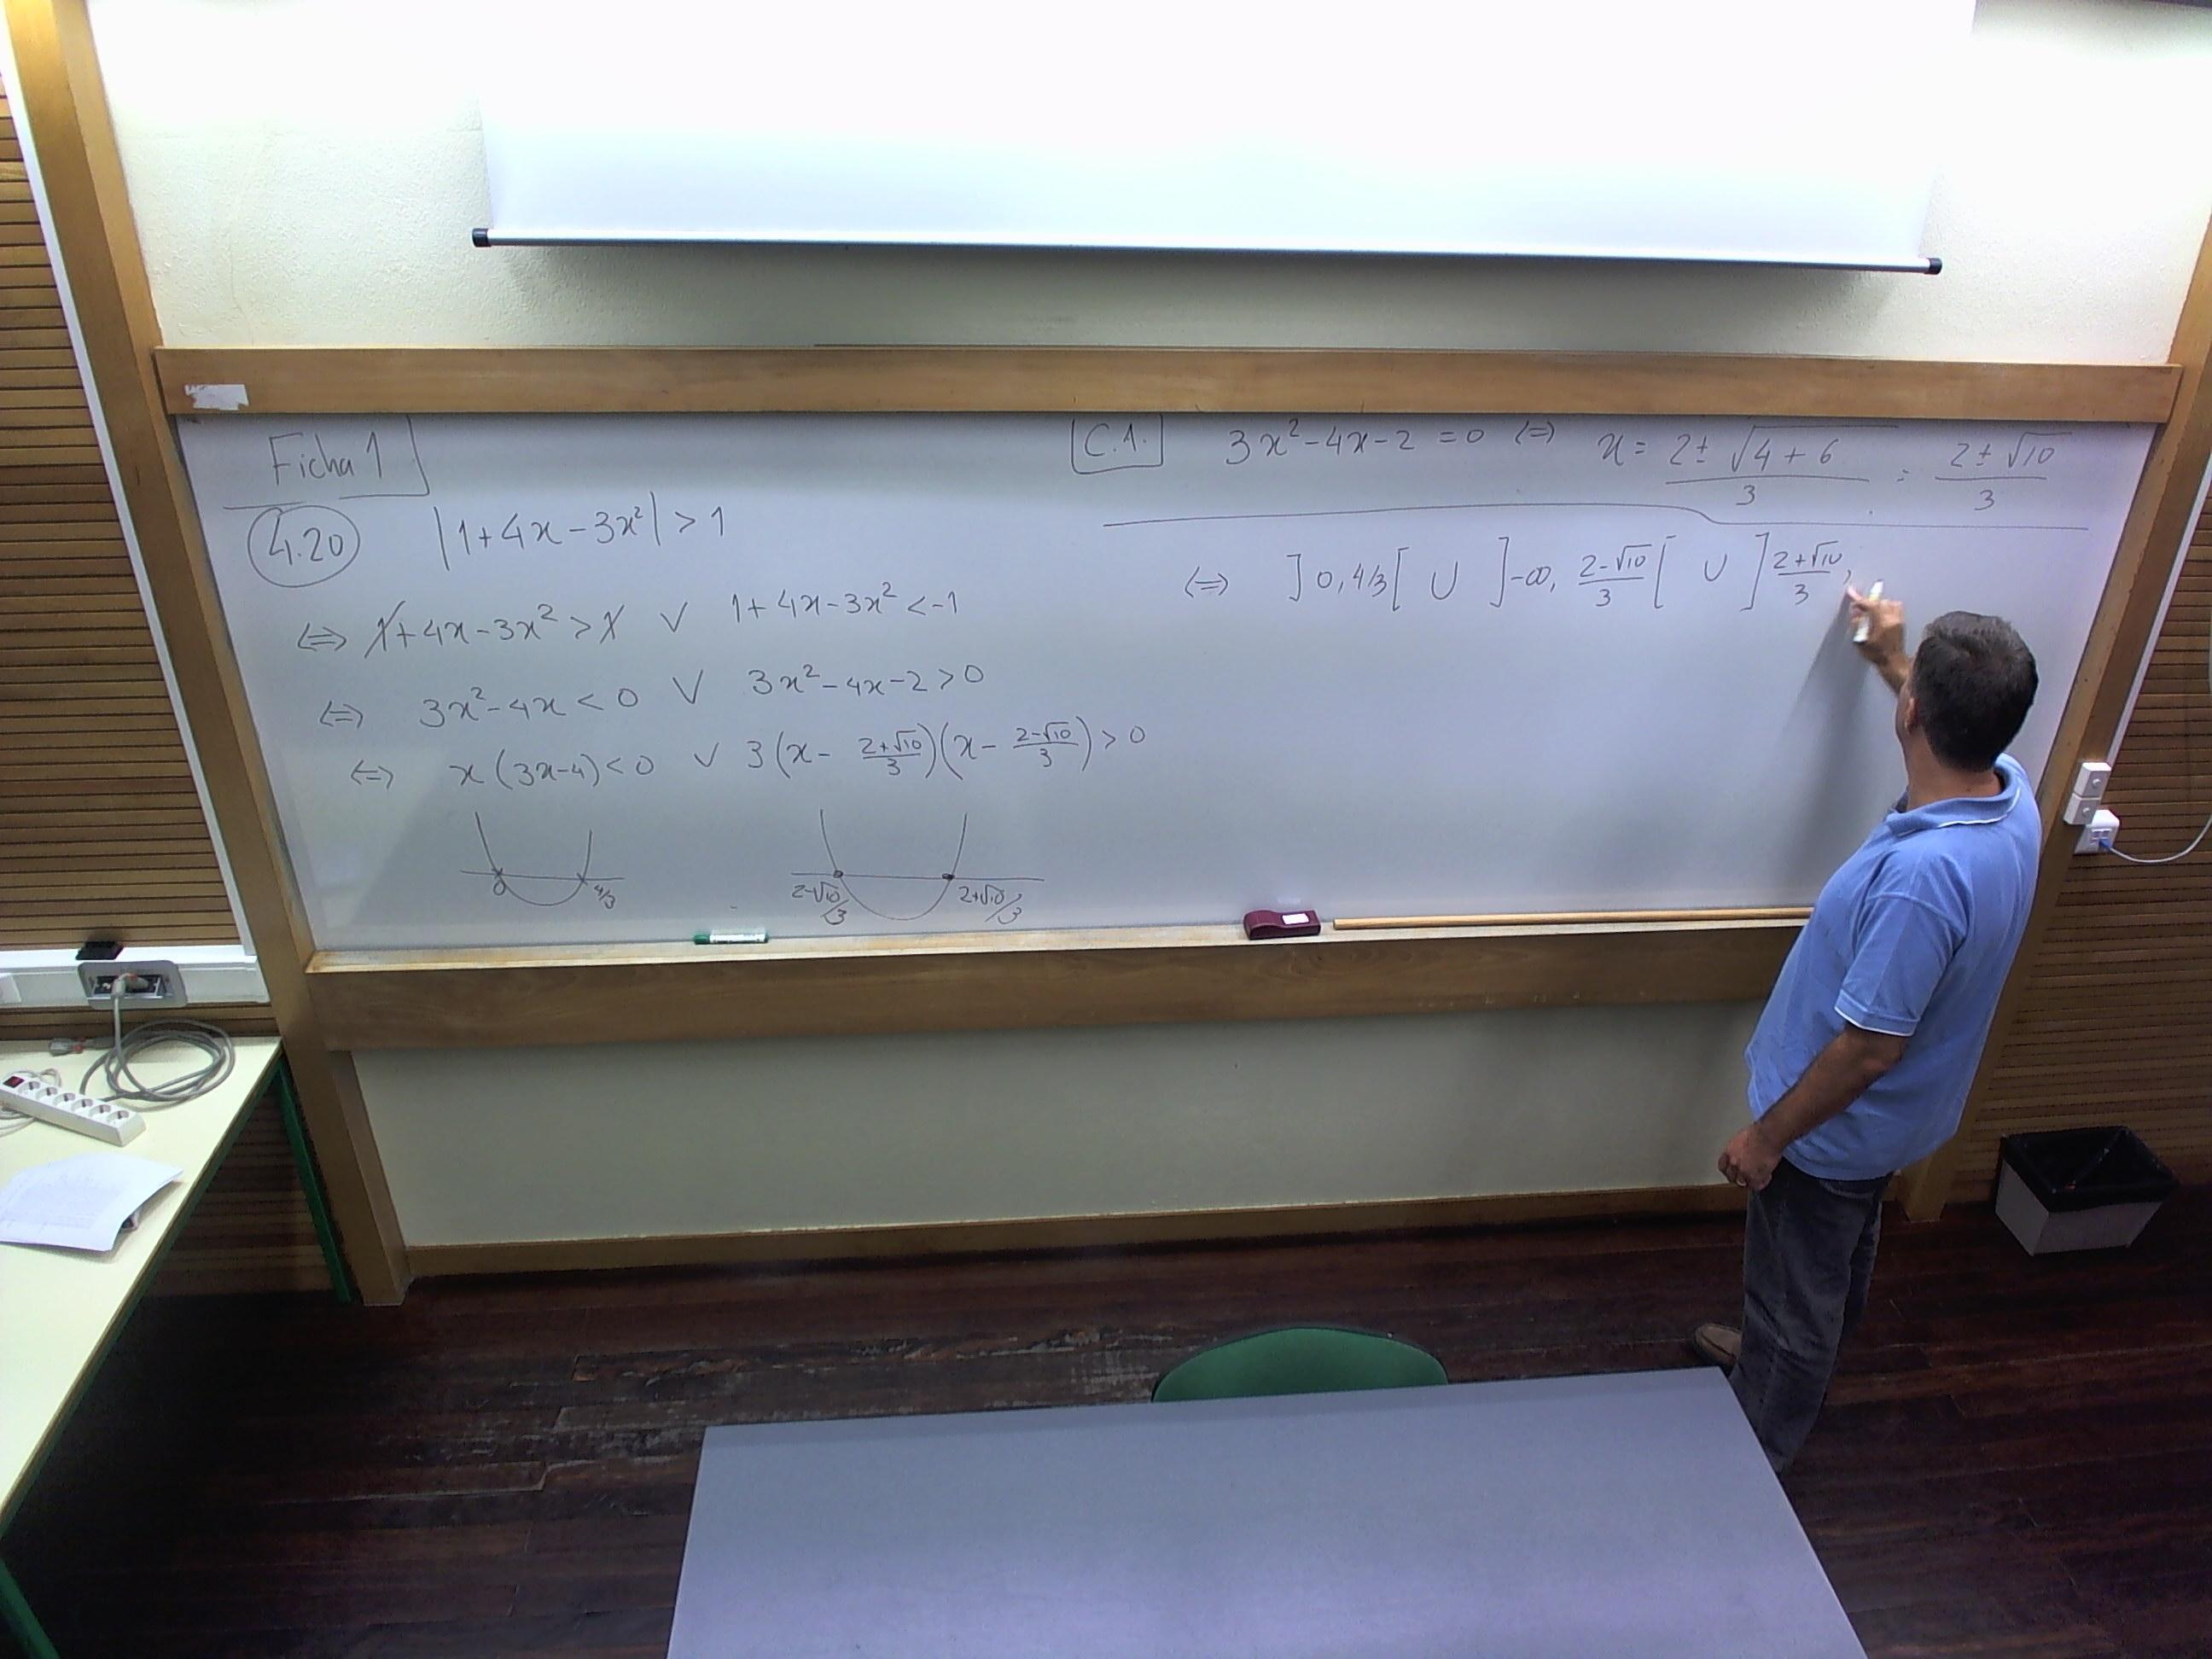 Ficha 1
4.20 |1+4x-3x²| > 1
⇔ 1+4x-3x² > 1 ∨ 1+4x-3x² < -1
⇔ 3x²-4x < 0 ∨ 3x²-4x-2 > 0
⇔ x(3x-4) < 0 ∨ 3(x - (2+√10)/3)(x - (2-√10)/3) > 0
0 4/3 2-√10/3 2+√10/3
C.A. 3x²-4x-2 = 0 ⇔ x = (2 ± √(4+6))/3 = (2 ± √10)/3
⇔ ]0, 4/3[ ∪ ]-∞, (2-√10)/3[ ∪ ](2+√10)/3,